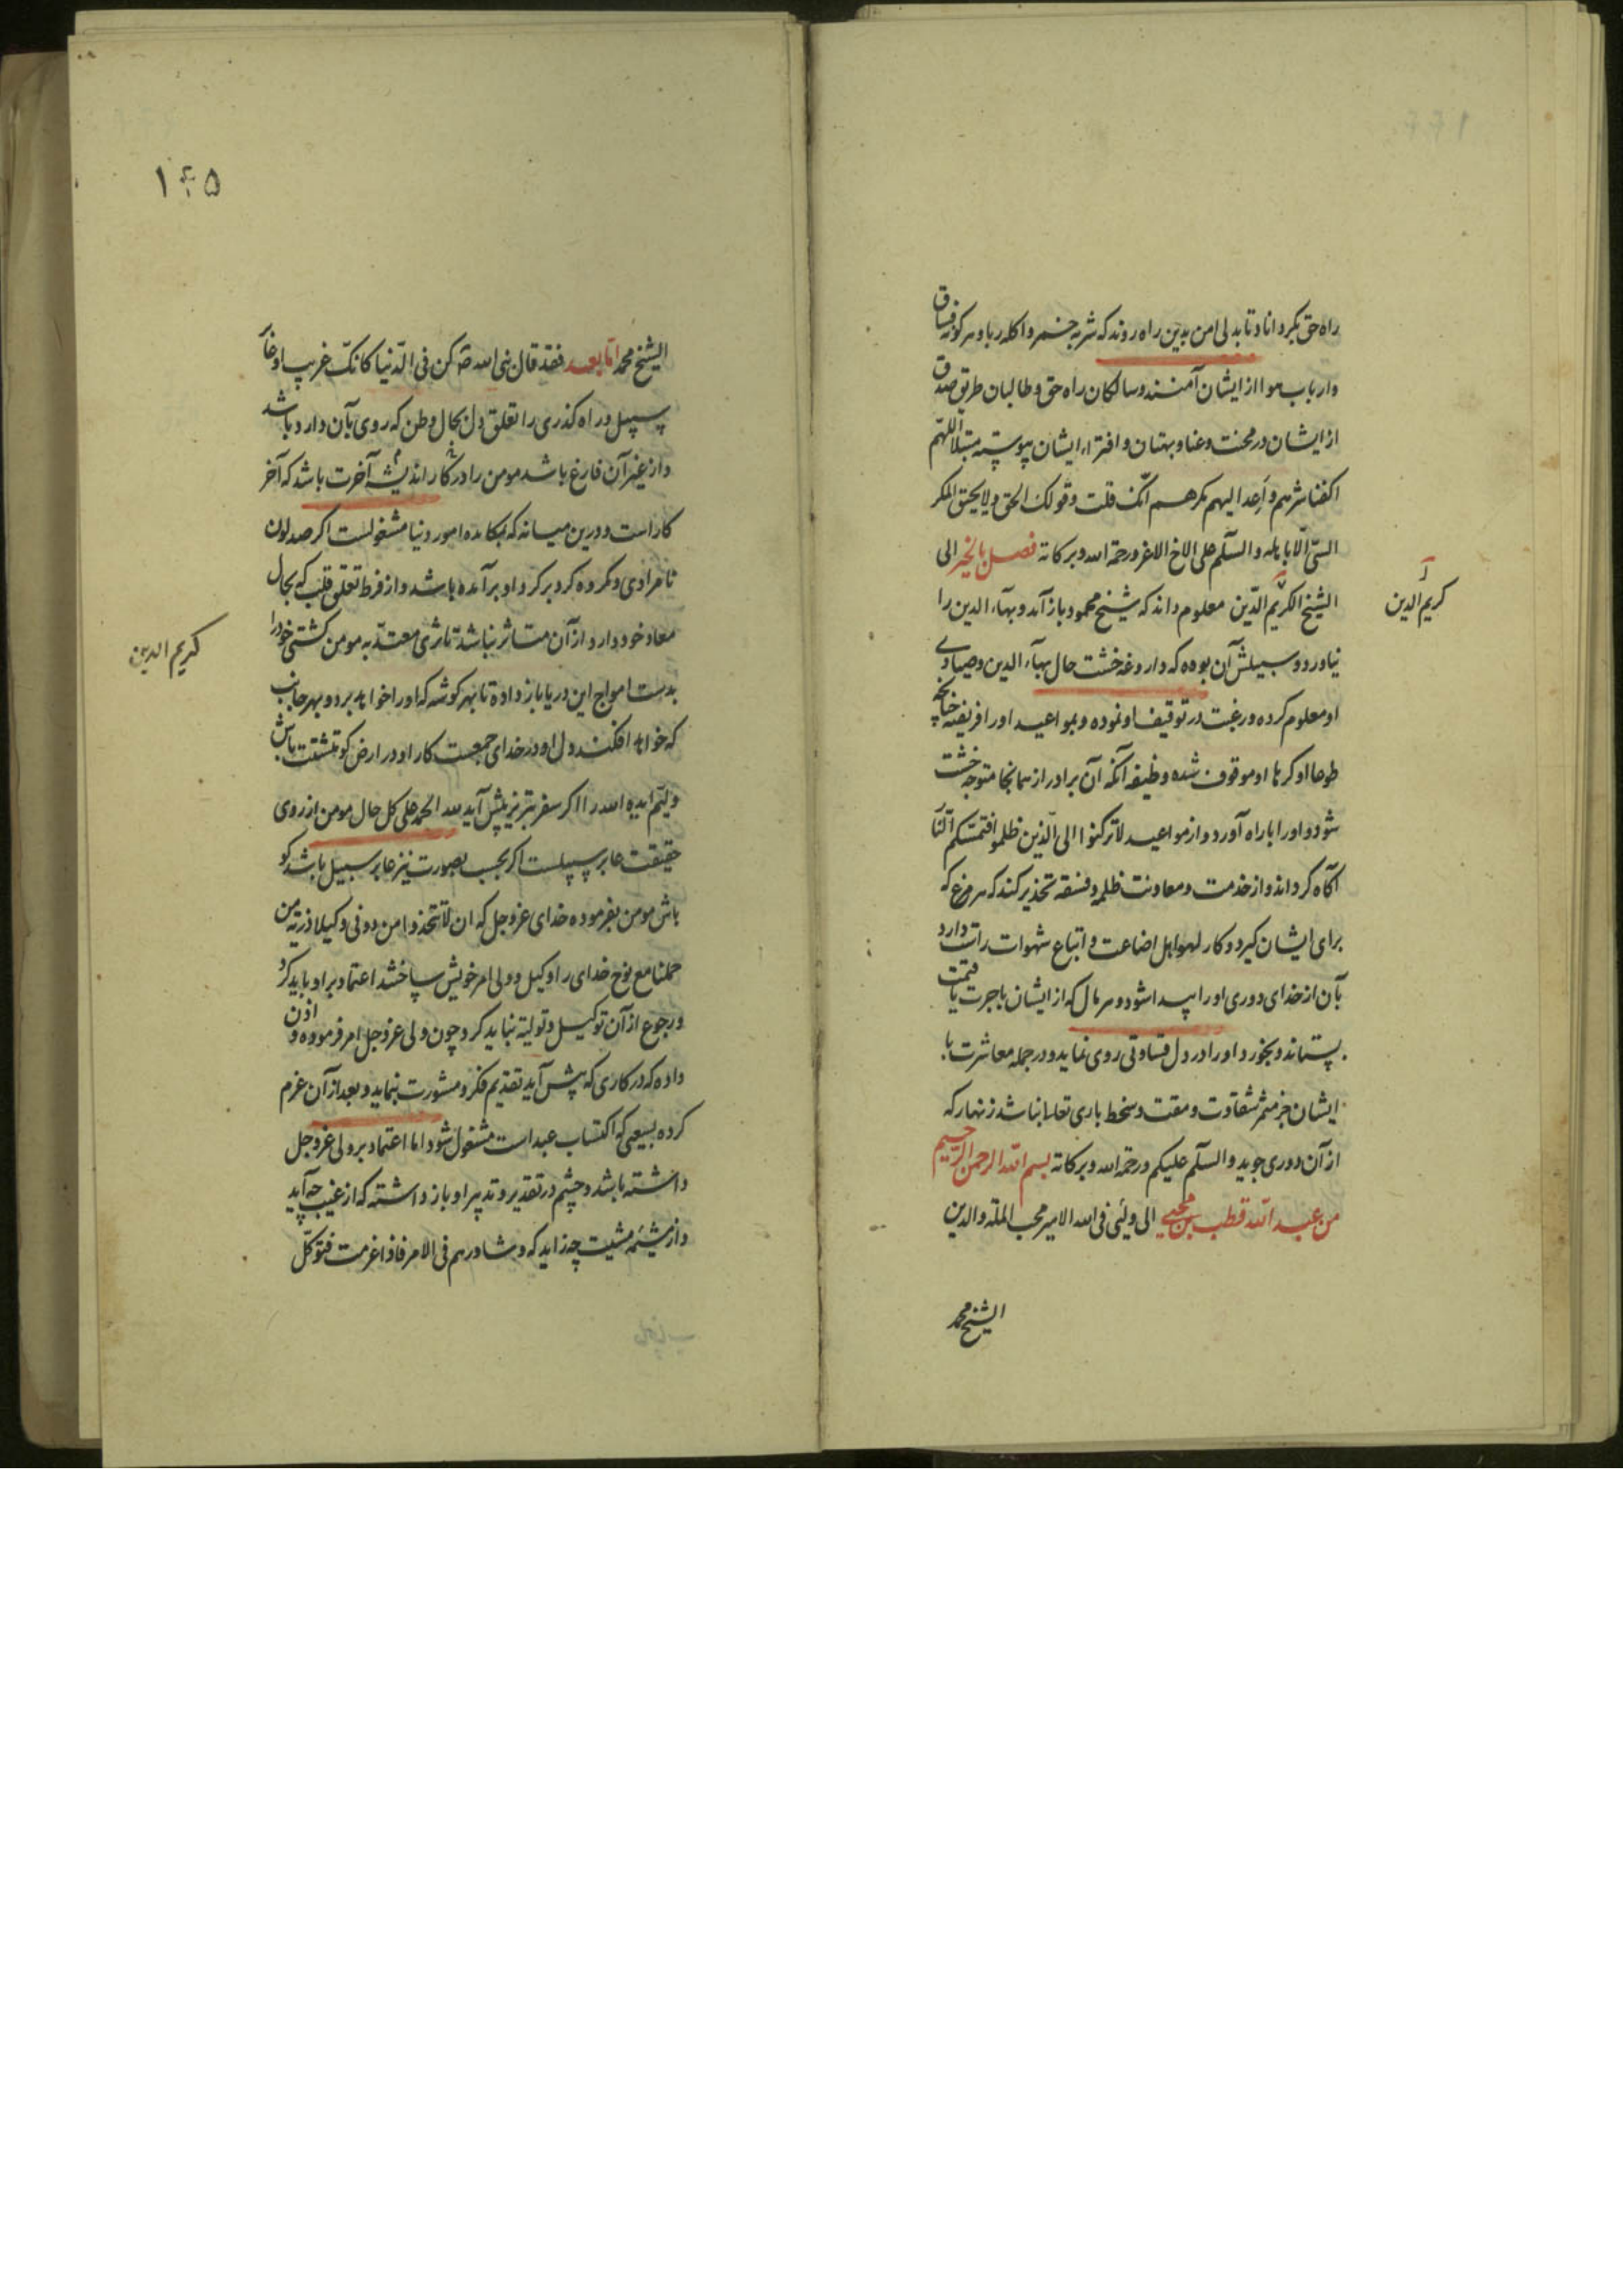 راه حق بگرداناد و تا بدلی امن بدین راه روند که شربه خمر و اکله ربا و هر گونه فساق
و ارباب هوا از ایشان آمنند و سالکان راه حق و طالبان طریق صدق
از ایشان در محنت و عنا و بهتان و افتراء ایشان پیوسته مبتلا اللهم
اکفنا شرهم و اعد الیهم مکرهم انک قلت و قولک الحق و لا یحیق المکر
السئ الا باهله و السلم علی الاخ الاغر و رحمة الله و برکاته فصل بالخیر الی
الشیخ الکریم الدین معلوم داند که شیخ محمود باز آمد و بهاء الدین را
نیاورد و سبیلش آن بوده که داروغه خشت حال بهاء الدین و صیادی
او معلوم کرده و رغبت در توقیف او نموده و بمواعید او را فریفته چنانچه
طوعا او کرها او موقوف شده وظیفه آنکه آن برادر از همانجا متوجه خشت
شود و او را با راه آورد و از مواعید لا ترکنوا الی الذین ظلموا فتمسکم النار
آگاه گرداند و از خدمت و معاونت ظلمه و فسقه تحذیر کند که هر مرغ که
برای ایشان گیرد و کار لهو اهل اضاعت و اتباع شهوات راست دارد
بآن از خدای دوری او را پیدا شود و هر مال که از ایشان باجرت یا قیمت
بستاند و بخورد او را در دل قساوتی روی نماید و در جمله معاشرت با
ایشان جز مثمر شقاوت و مقت و سخط باری تعالی نباشد زنهار که
از آن دوری جوید و السلم علیکم و رحمة الله و برکاته بسم الله الرحمن الرحیم
من عبد الله قطب بن محیی الی ولیی فی الله الامیر محب الملة و الدین
الشیخ محمد
کریم الدین
۱۴۵
الشیخ محمد اما بعد فقد قال نبی الله صه کن فی الدنیا کانک غریب او عابر
سبیل و راه گذری را تعلق دل بحال وطن که روی بآن دارد باشد
و از غیر آن فارغ باشد مومن را در کار اندیشه آخرت باشد که آخر
کار است و درین میانه که بکاده امور دنیا مشغولست اگر صد لون
نامرادی و مکروه گرد بر گرد او برآمده باشد و از فرط تعلق قلب که بحال
معاد خود دارد از آن متاثر نباشد تاثری معتد به مومن کشتی خود را
بدست امواج این دریا باز داده تا بهر گوشه که او را خواهد برد و بهر جانب
که خواهد افکند دل او در خدای جمعست کار او در ارض گو تشتت باش
ولیم ایده الله را اگر سفر تبریز پیش آید لله الحمد علی کل حال مومن از روی
حقیقت عابر سبیلست اگر بحسب صورت نیز عابر سبیل باشد گو
باش مومن بفرموده خدای عز و جل که ان لا تتخذوا من دونی وکیلا ذریة من
حملنا مع نوح خدای را وکیل و ولی امر خویش ساخته اعتماد بر او باید کرد
و رجوع از آن توکیل و تولیه نباید کرد چون ولی عز و جل امر فرموده و اذن
داده که در کاری که پیش آید تقدیم فکر و مشورت بنماید و بعد از آن عزم
کرده بسعیی که اکتساب عبد است مشغول شود اما اعتماد بر ولی عز و جل
داشته باشد و چشم در تقدیر و تدبیر او باز داشته که از غیب چه آید
و از مشیمه مشیت چه زاید که و شاورهم فی الامر فاذا عزمت فتوکل
کریم الدین